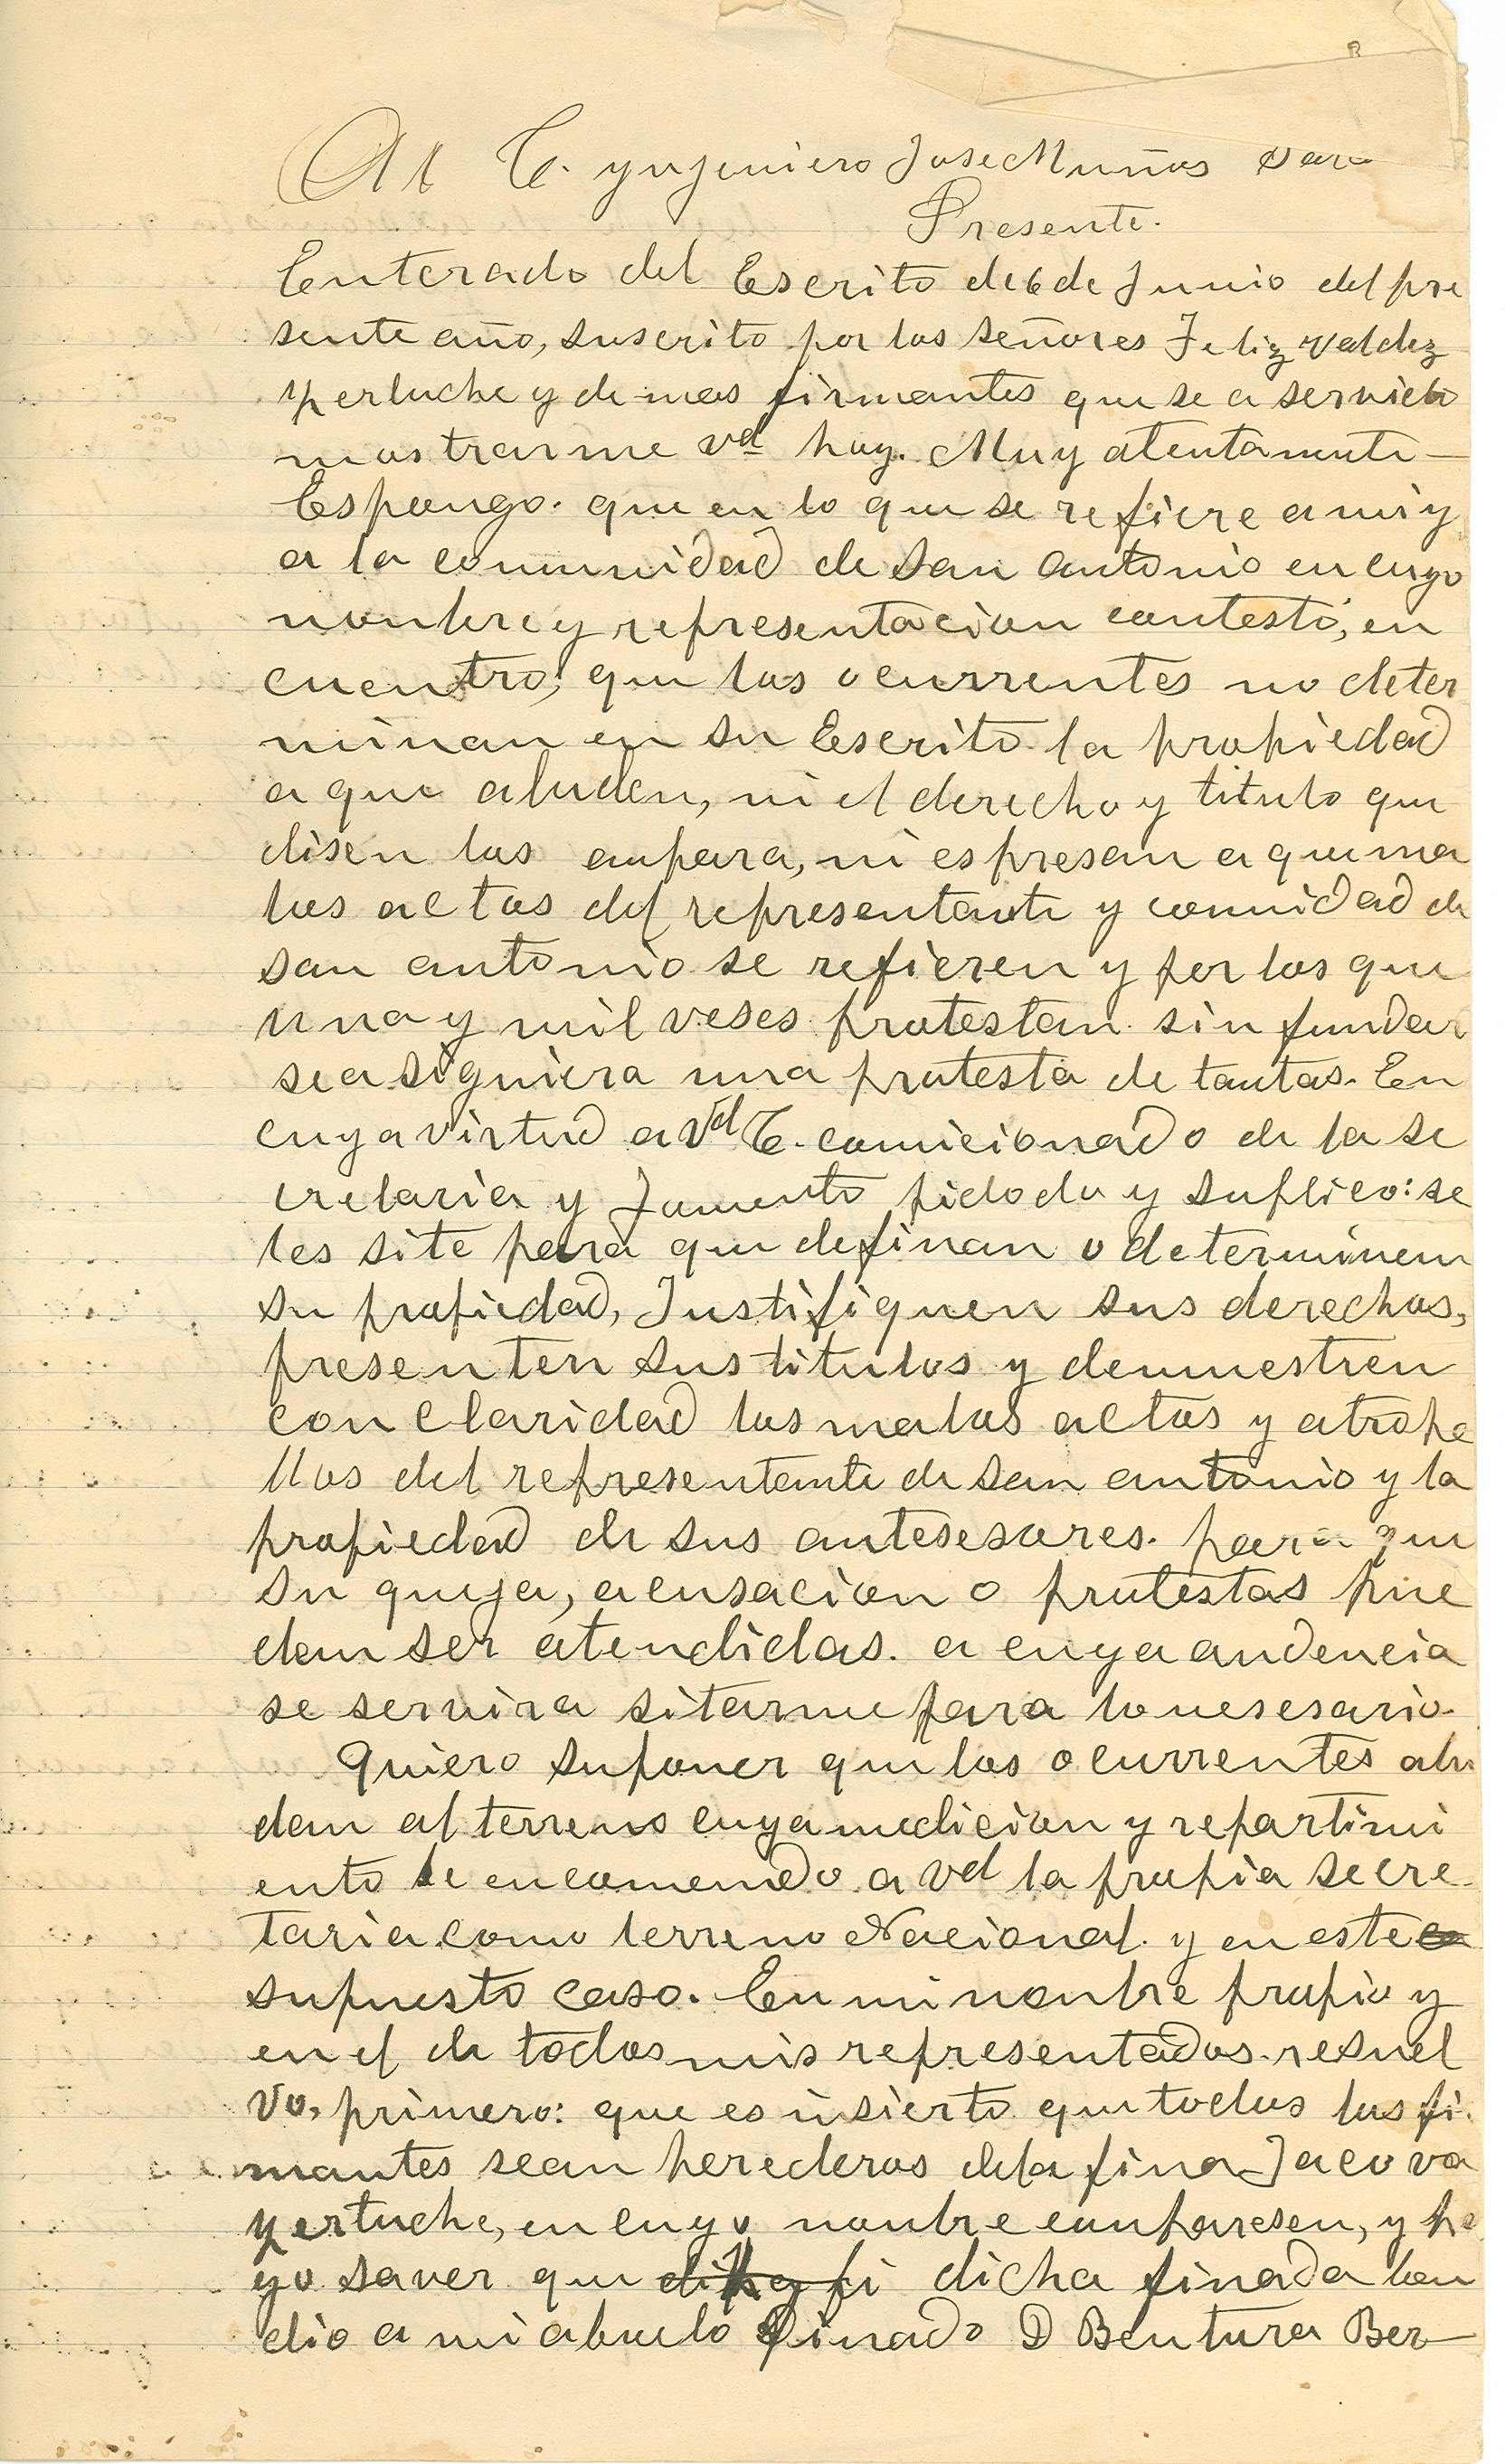 Al C. yngeniero Jose Muños
Presente.
Enterado del Escrito de 6 de Junio del pre
sente año, suscrito por los señores Feliz Valdez
Yertuche y demas firmantes que se a servido
mostrarme Vd hoy. Muy atentamente
Espongo. que en lo que se refiere a mi y
a la comunidad de San antonio en cuyo
nombre y representacion contesto, en
cuentro, que los ocurrentes no deter
minan en su Escrito la propiedad
a que aluden, ni el derecho y titulo que
disen los anpara, ni espresan a que ma
los actos del representante y comnidad de
San antonio se refieren y por los que
una y mil veses protestan sin fundar
sea siquiera una protesta de tantas. En
cuya virtud a Vd C. comicionado de la se
cretaria y Fomento pidodo y suplico: se
les site para que definan o determinen
su propiedad, Justifiquen sus derechos,
presenten sus titulos y demuestren
con claridad los malos actos y atrope
llos del representante de San antonio y la
propiedad de sus antesesores. para que
su queja, acusacion o protestas pue
dan ser atendidas. a cuya audencia
se servira sitarme para lo nesesario.
Quiero suponer que los ocurrentes alu
den al terreno cuya medicion y repartimi
ento le encomendo a Vd la propia secre
taria como terreno Nacional y en este
supuesto caso. En mi nonbre propio y
en el de todos mis representados. resuel
vo, primero: que es insierto que todos los fi
mantes sean herederos de la fina Jacova
Yertuche, en cuyo nonbre conparesen, y he
yo saver que dicha finada ben
dio a mi abuelo finado D Bentura Ber